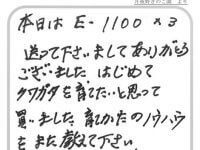 月夜野きのこ園 より
本日は E-1100 × 3
送って下さいましてありがとう
ございました。はじめて
クワガタを育てたいと思って
買いました。育てかたのノウハウ
をまた教えて下さい。